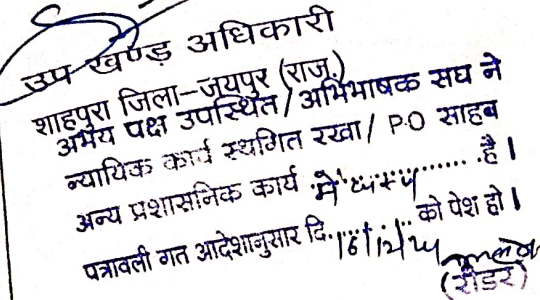 उप खण्ड अधिकारी
शाहपुरा जिला-जयपुर (राज.)
अभय पक्ष उपस्थित/अभिभाषक सघ ने
न्यायिक कार्य स्थगित रखा/ P.O साहब
अन्य प्रशासनिक कार्य में व्यस्त है।
पत्रावली गत आदेशानुसार दि. 16/12/24 को पेश हो।
(रीडर)